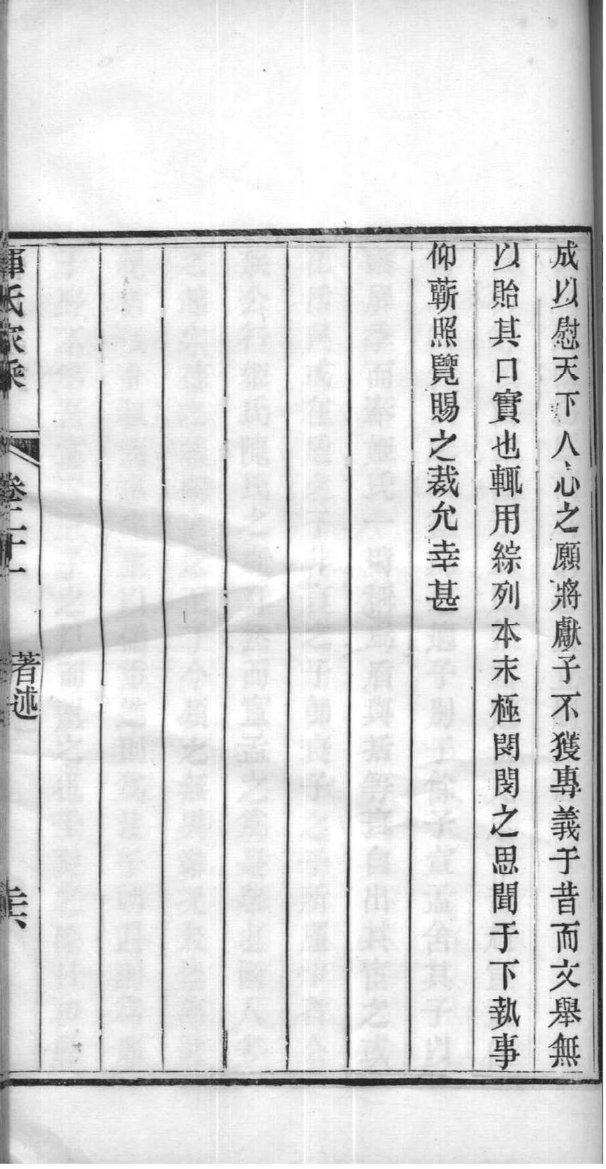 成以慰天下人心之願將獻子不獲專義于昔而文舉無
以貽其口實也輒用綜列本末極閔閔之思聞于下執事
仰蘄照覽賜之裁允幸甚
惲氏家乘
卷二十一
著述
六